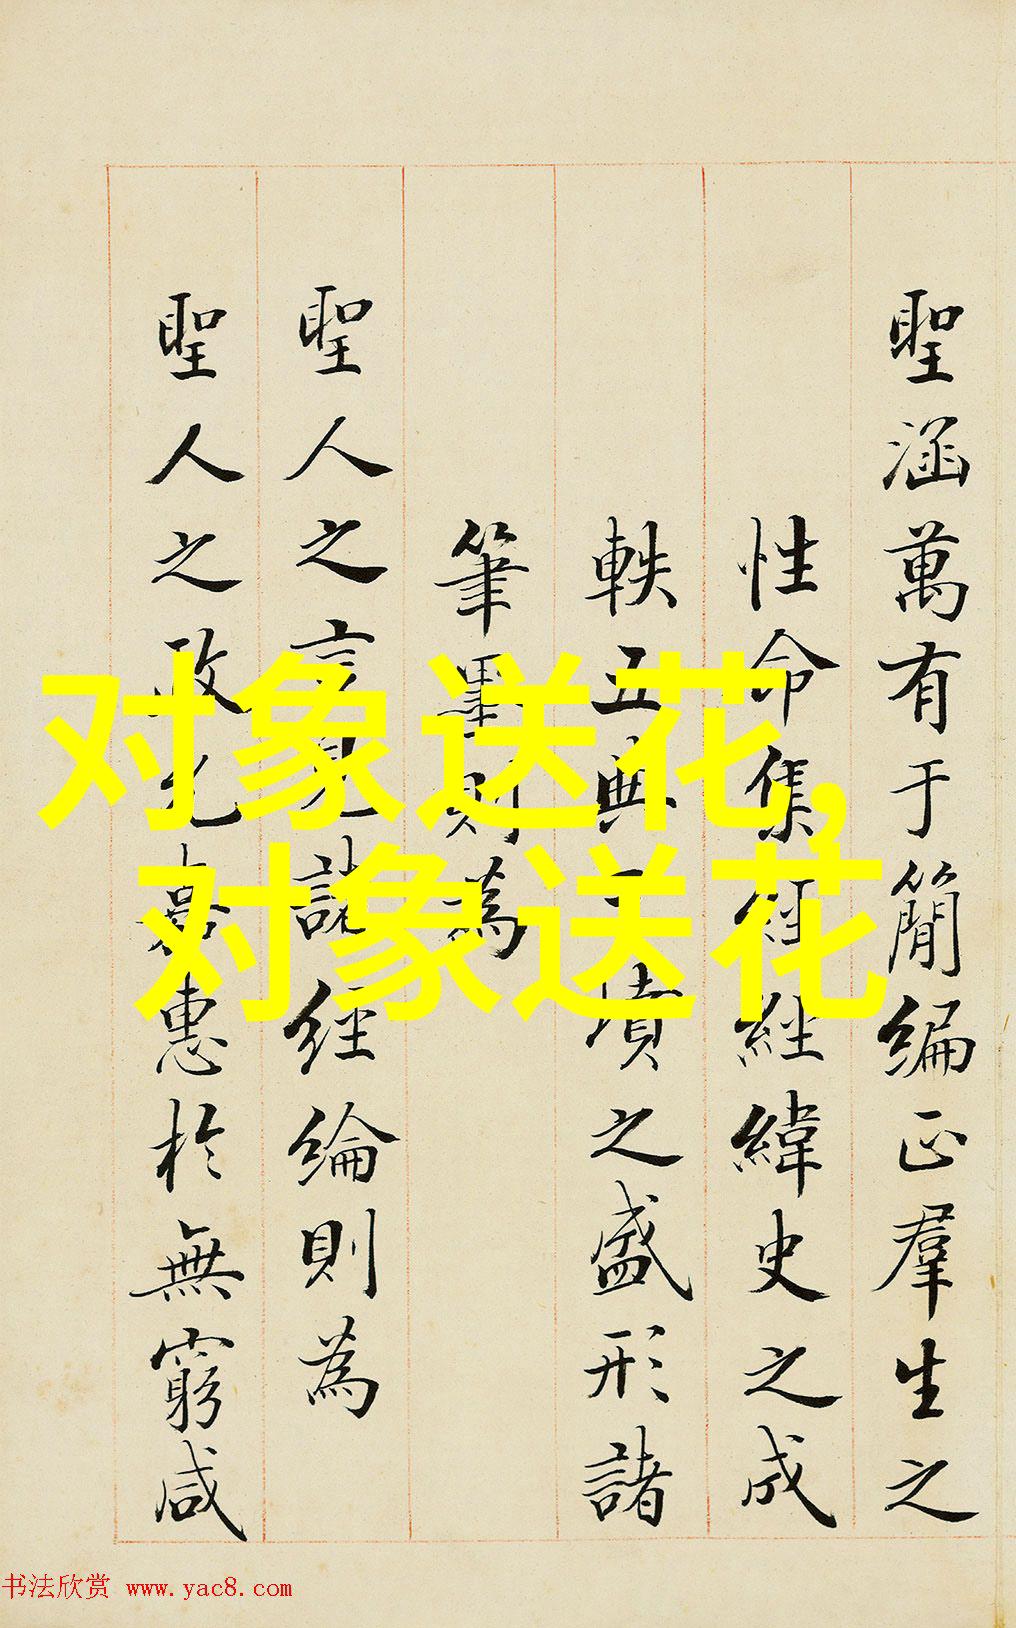 对象送花,
对象送花
聖涵萬有于簡編正羣生之
性命集經緯史之成
軼五典三墳之盛形諸
筆墨則為
聖人之言見諸經綸則為
聖人之政化嘉惠於無窮咸
书法欣赏 www.yac8.com